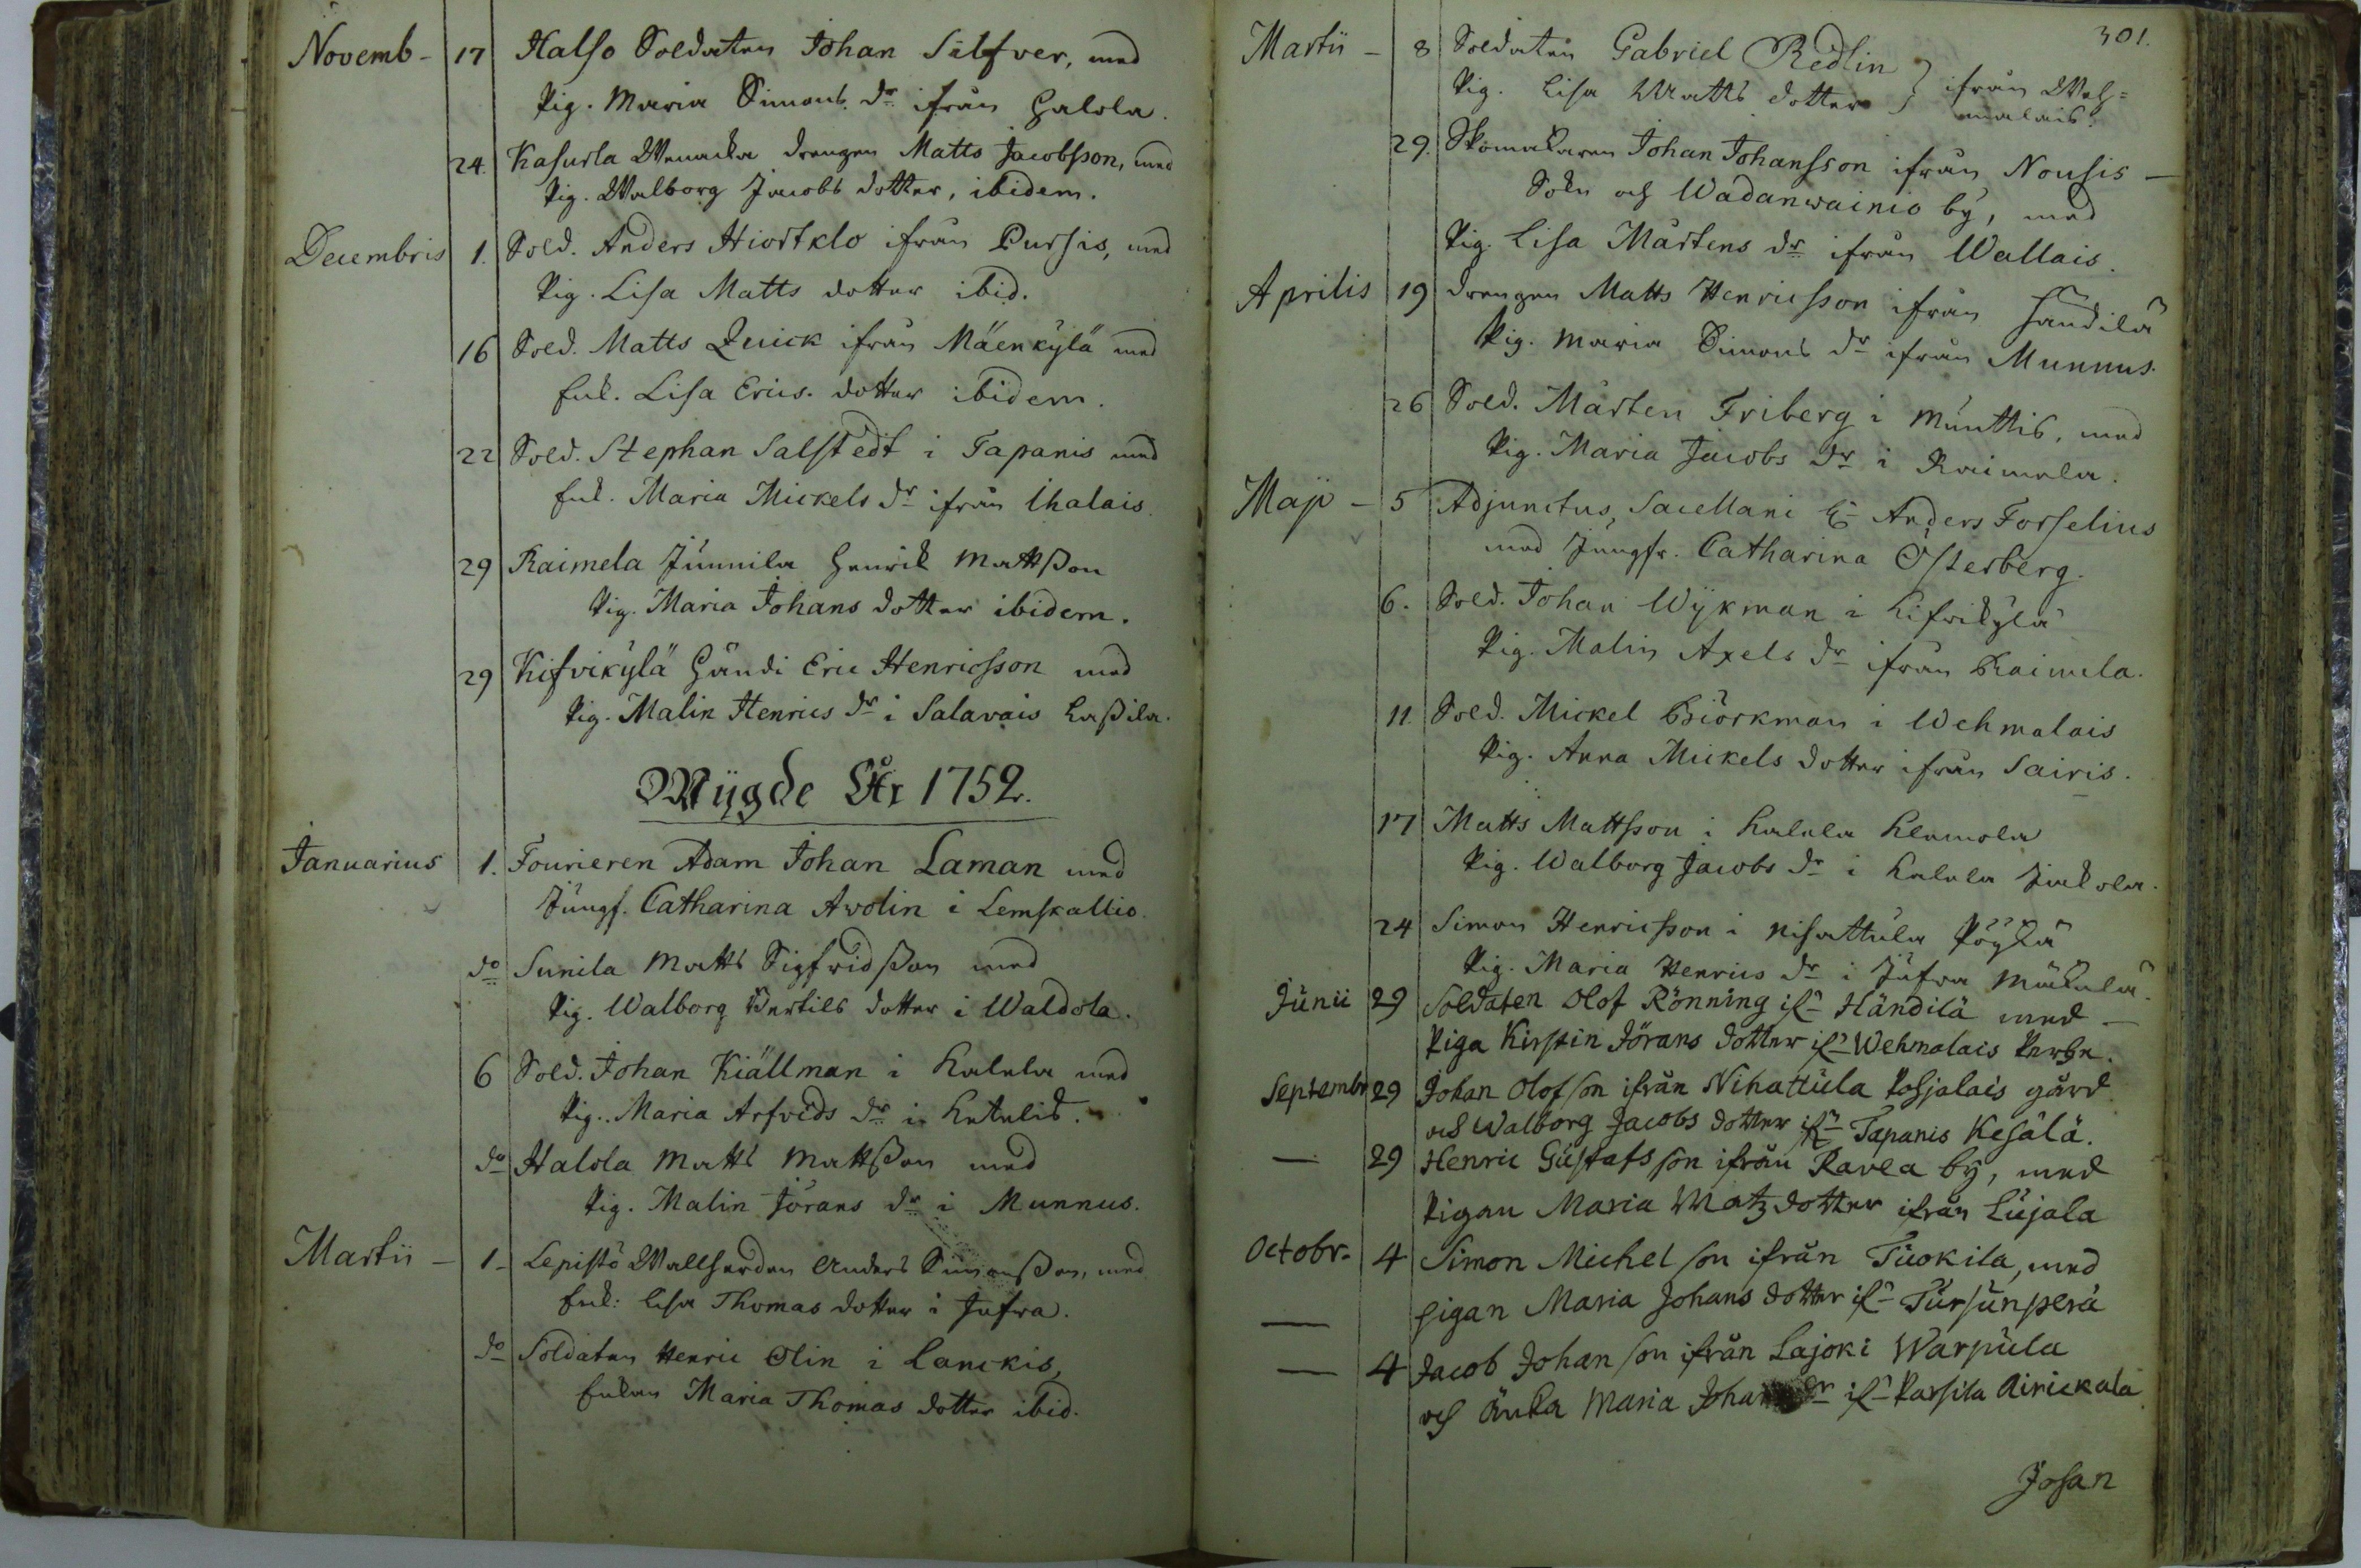 Novemb - 17 Halso Soldaten Johan Silfver, med
Pig. Maria Simons dr ifrån Halola.
24. Kasurla Wenacka drengen Matts Jacobsson, med
Pig. Walborg Jacobs dotter, ibidem.
Decembris 1. Sold. Anders Hiortklo ifrån Pursis, med
Pig. Lisa Matts dotter ibid.
16 Sold. Matts Quick ifrån Mäenkylä med
Enk. Lisa Erics dotter ibidem.
22 Sold. Stephan Salstedt i Tapanis med
Enk. Maria Mickels dr ifrån Ihalais.
29 Raimela Junnila Henrik Mattsson
Pig. Maria Johans dotter ibidem.
29 Kifvikylä Händi Eric Henricsson med
Pig. Malin Henrics dr i Salavais Lassila.
Wigde År 1752.
Januarius 1. Fourieren Adam Johan Laman med
Jungf. Catharina Avolin i Lemskallio.
do Sunila Matts Sigfridsson med
Pig. Walborg Bertils dotter i Waldola.
6 Sold. Johan Kiällman i Kalela med
Pig. Maria Arfvids dr i Ketelis.
do Halola Matts Mattsson med
Pig. Malin Jörans dr i Munnus.
Martii - 1 - Lepistö Wallherden Anders Simonsson, med
Enk: Lisa Thomas dotter i Jufva.
do Soldaten Henric Olin i Lanckis,
Enkan Maria Thomas dotter ibid.
301.
Martii - 8 Soldaten Gabriel Redlin } ifrån Weh=
Pig. Lisa Matts dotter } malais.
29. Skomakaren Johan Johansson ifrån Nousis -
Sokn och Wadanwainio by, med
Pig. Lisa Mårtens dr ifrån Wallais.
Aprilis 19 drengen Matts Henricsson ifrån Händilä
Pig. Maria Simons dr ifrån Munnus.
26 Sold. Mårten Friberg i Munttis, med
Pig. Maria Jacobs dr i Raimela.
Maji - 5 Adjunctus Sacellani Hr Anders Forselius
med Jungfr. Catharina Österberg.
6. Sold. Johan Wijkman i Kifvikylä
Pig. Malin Axels dr ifrån Raimela.
11. Sold. Mickel Biörkman i Wehmalais
Pig. Anna Mickels dotter ifrån Sairis.
17 Matts Mattsson i Kalela Klemola
Pig. Walborg Jacobs dr i Kalela Jackola.
24 Simon Henricsson i Nihattula Pöykä
Pig. Maria Henrics dr i Jufva Mäkelä.
Junii 29 Soldaten Olof Rönning ifn Händilä med -
Piga Kirstin Jörans dotter ifn Wehmalais Perhe.
Septembr 29 Johan Olofson ifrån Nihattula Pohjalais gård
och Walborg Jacobs dotter ifn Tapanis Kesälä.
— 29 Henric Gustafsson ifrån Ravea by, med
Pigan Maria Matz dotter ifrån Lujala
Octobr. 4 Simon Michelson ifrån Tuokila, med
— pigan Maria Johans dotter ifn Tursunperä
— 4 Jacob Johanson ifrån Lajoki Warpula
och Änka Maria Johans dr ifn Passila Airickala
Johan